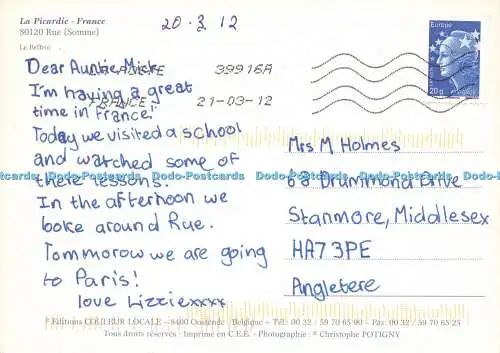 La Picardie - France
80120 Rue (Somme)
Le Beffroi
20.3.12
Europe
20g
39916A
FRANCE
21-03-12
Dear Auntie Mick,
I'm having a great
time in France!
Today we visited a school
and watched some of
there lessons.
In the afternoon we
looke around Rue.
Tommorow we are going
to Paris!
love Lizziexxxx
Mrs M Holmes
68 Drummond Drive
Stanmore, Middlesex
HA7 3PE
Angletere
Dodo-Postcards Dodo-Postcards Dodo-Postcards Dodo-Postcards Dodo-Postcards
Editions COULEUR LOCALE – 8400 Oostende – Belgique – Tél: 00 32 / 59 70 65 90 – Fax: 00 32 / 59 70 65 25
Tous droits réservés - Imprimé en C.E.E. - Photographie : © Christophe POTIGNY